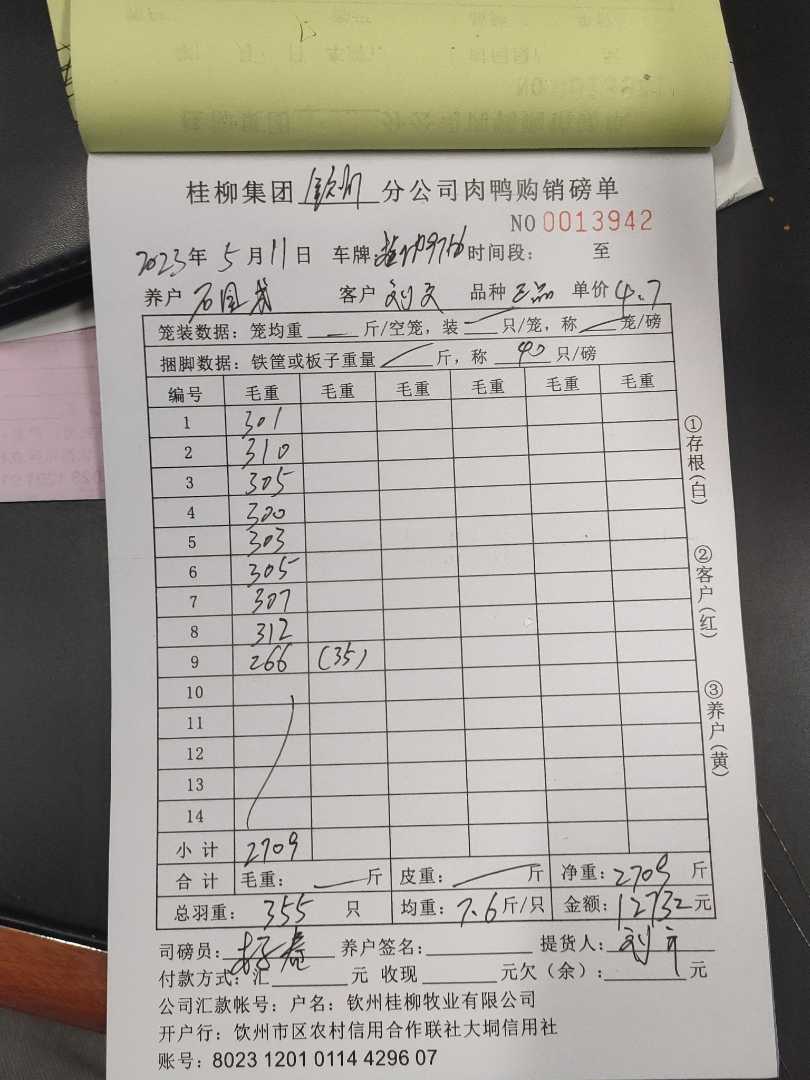 桂柳集团 钦州 分公司肉鸭购销磅单
NO 0013942
2023年 5月11日 车牌 时间段: 至
养户 石国 客户 刘文 品种 正品 单价 4.7
笼装数据:笼均重 斤/空笼,装 只/笼,称 笼/磅
捆脚数据:铁筐或板子重量 斤,称 40 只/磅
编号 毛重 毛重 毛重 毛重 毛重 毛重
1 301
2 310
3 305
4 300
5 303
6 305
7 307
8 312
9 266 (35)
10
11
12
13
14
小计 2709
合计 毛重: 斤 皮重: 斤 净重:2709 斤
总羽重: 355 只 均重:7.6斤/只 金额:12732元
司磅员: 养户签名: 提货人:刘
付款方式:汇 元 收现 元欠(余): 元
公司汇款帐号:户名:钦州桂柳牧业有限公司
开户行:饮州市区农村信用合作联社大垌信用社
账号:8023 1201 0114 4296 07
①存根(白)
②客户(红)
③养户(黄)